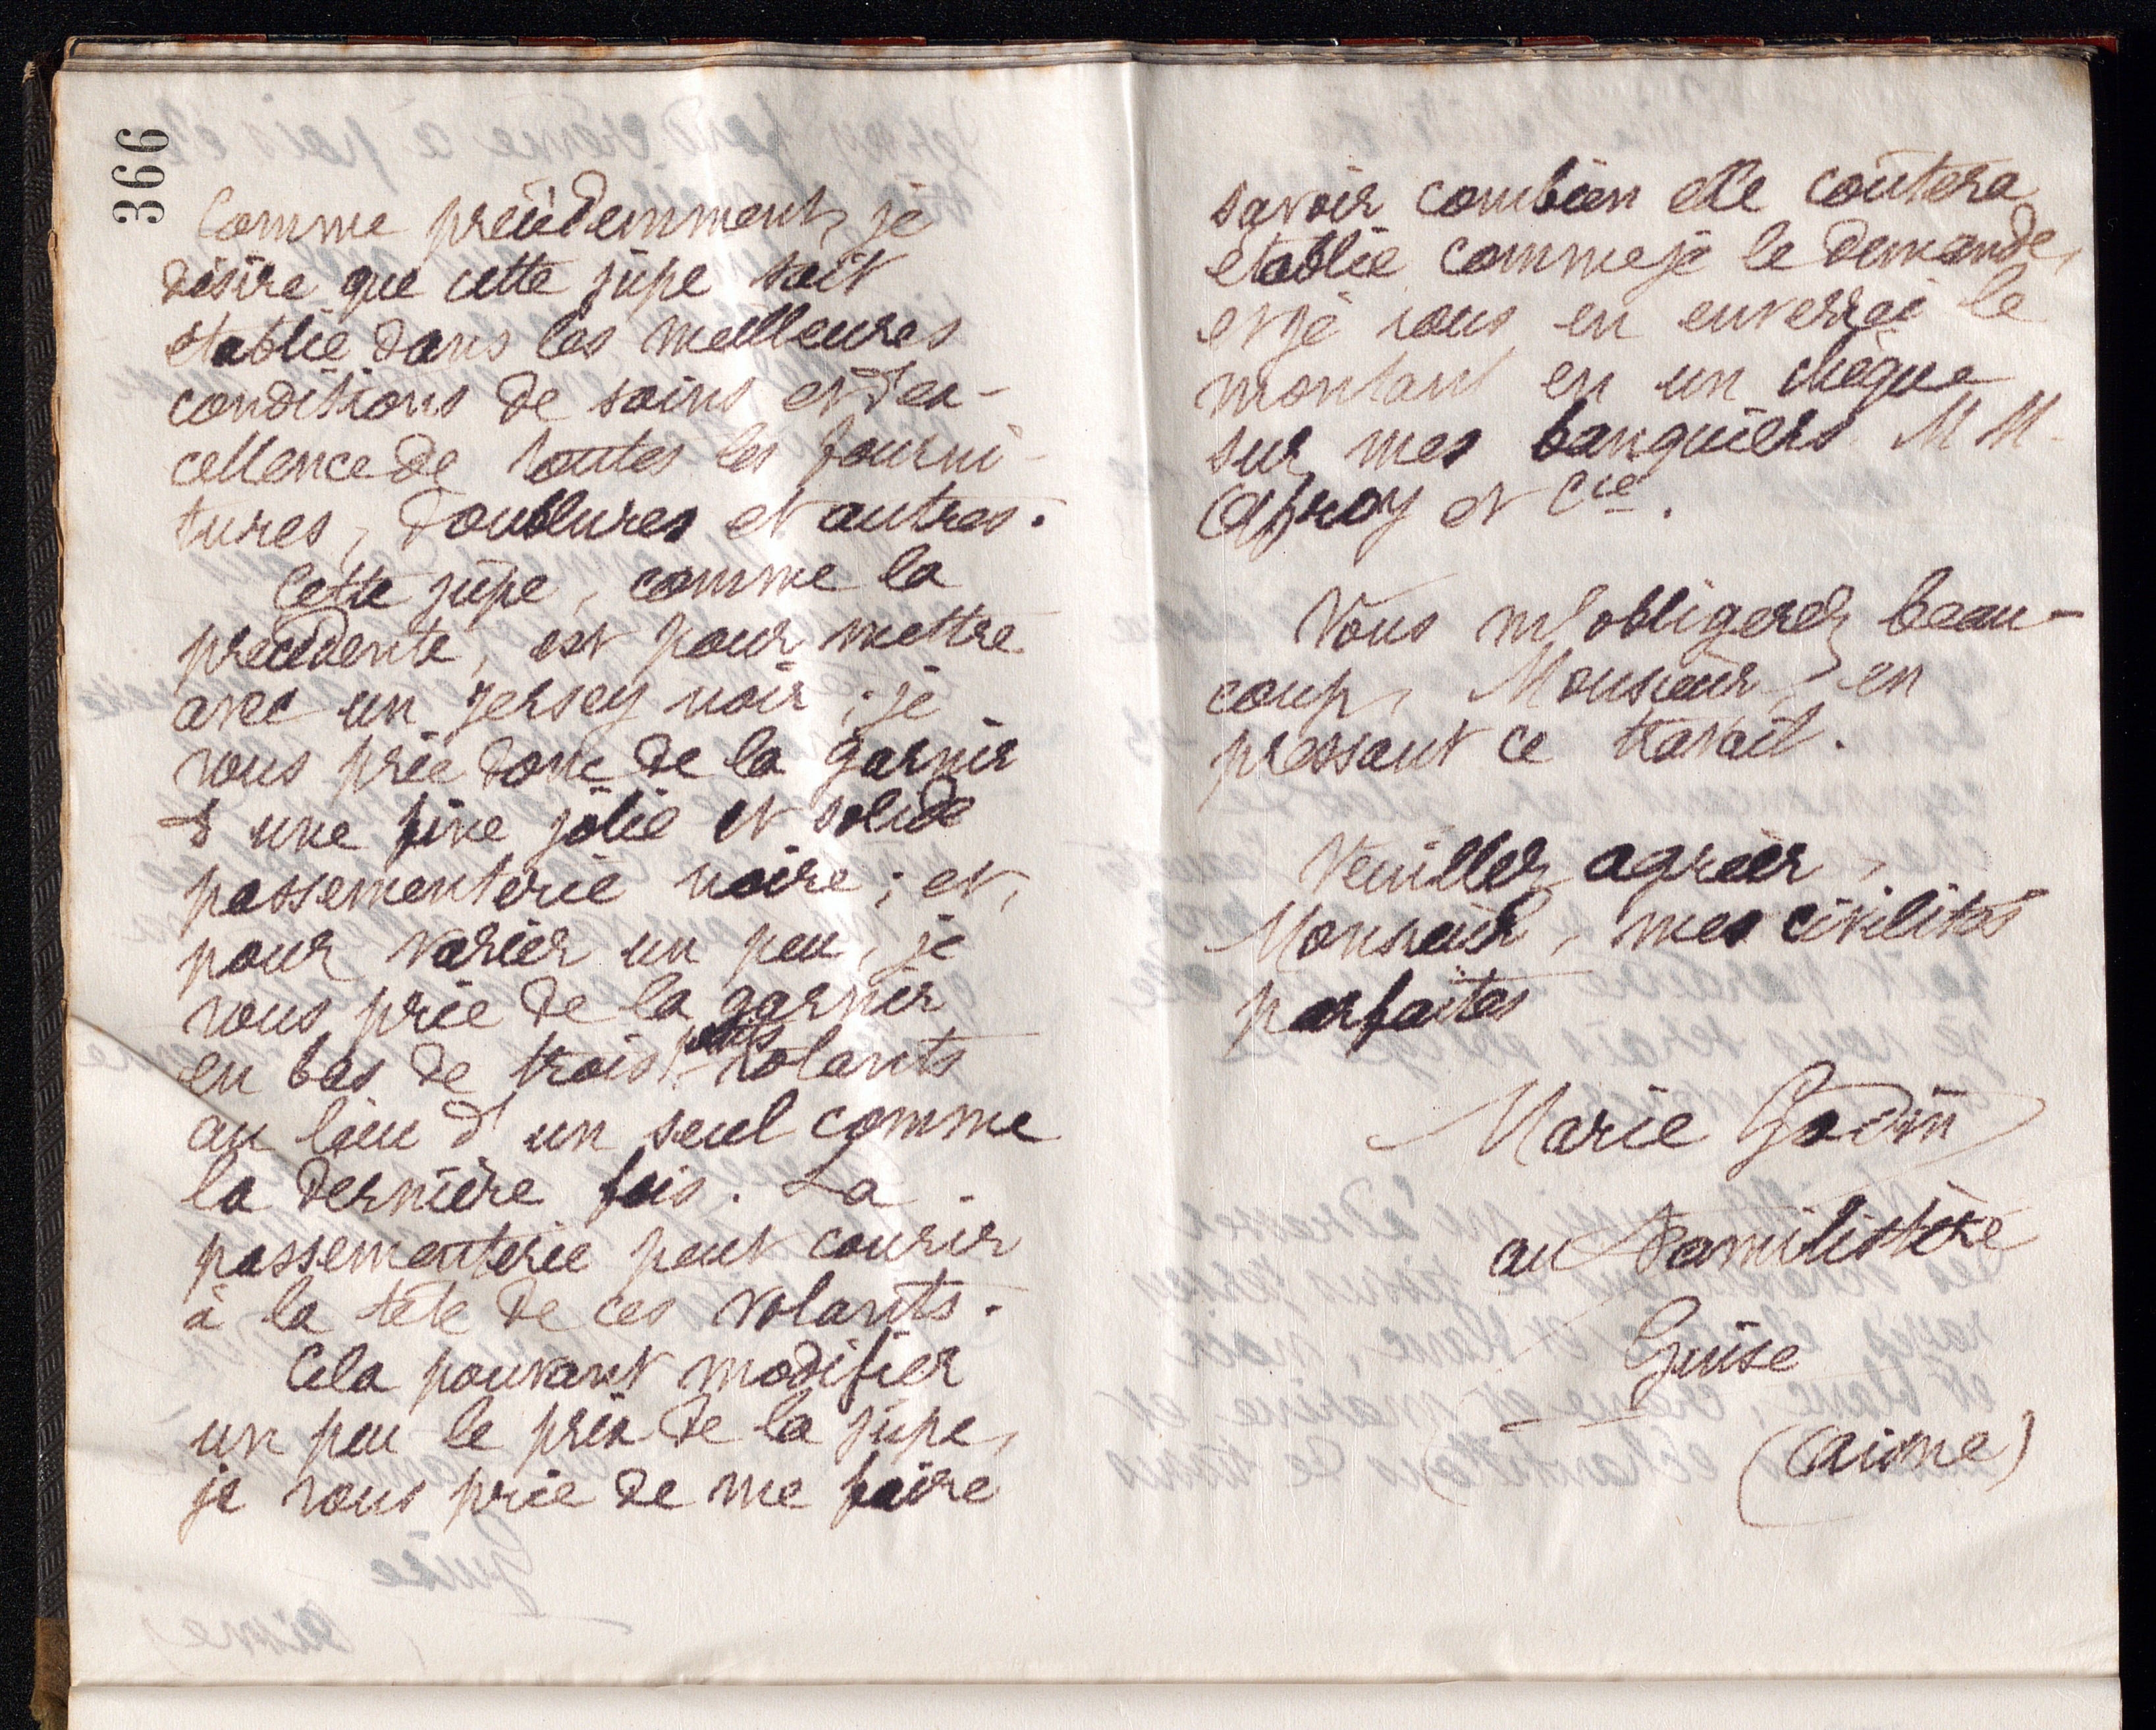 366
Comme précédemment, je
désire que cette jupe soit
établie dans les meilleures
conditions de soins et d'ex-
cellence de toutes les fourni-
tures, doublures et autres.
Cette jupe, comme la
précédente, est pour mettre
avec un jersey noir ; je
vous prie donc de la garnir
d'une fine jolie et solide
passementerie noire ; et,
pour varier un peu, je
vous prie de la garnir
en bas de trois petits volants
au lieu d'un seul comme
la dernière fois. La
passementerie peut courir
à la tête de ces volants.
Cela pouvant modifier
un peu le prix de la jupe,
je vous prie de me faire
savoir combien elle coûtera
établie comme je le demande,
et je vous en enverrai le
montant en un chèque
sur mes banquiers MM.
Offroy et Cie.
Vous m'obligerez beau-
coup, Monsieur, en
pressant ce travail.
Veuillez agréer,
Monsieur, mes civilités
parfaites
Marie Godin
au Familistère
Guise
(Aisne)